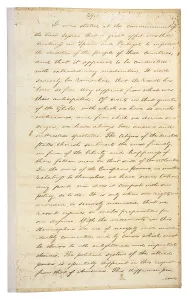 It was stated at the commencement of
the last session that a great effort was then
making in Spain and Portugal to improve
the condition of the people of those countries,
and that it appeared to be conducted
with extraordinary moderation. It need
scarcely be remarked that the result has
been so far very different from what was
then anticipated. Of events in that quarter
of the Globe, with which we have so much
intercourse, and from which we derive our
origin, we have always been anxious and
interested spectators. The citizens of the
United States cherish sentiments the most friendly
in favor of the liberty and happiness of
their fellow men on that side of the Atlantic.
In the wars of the European powers in matters
relating to themselves we have never taken
any part, nor does it comport with our
policy, so to do. It is only when our rights
are invaded, or seriously menaced that we
resent injuries or make preparation for
our defence. With the movements in this
Hemisphere we are of necessity more
immediately connected, and by causes which must
be obvious to all enlightened and impartial
observers. The political system of the allied
powers is essentially different in this respect
from that of America. This difference pro-